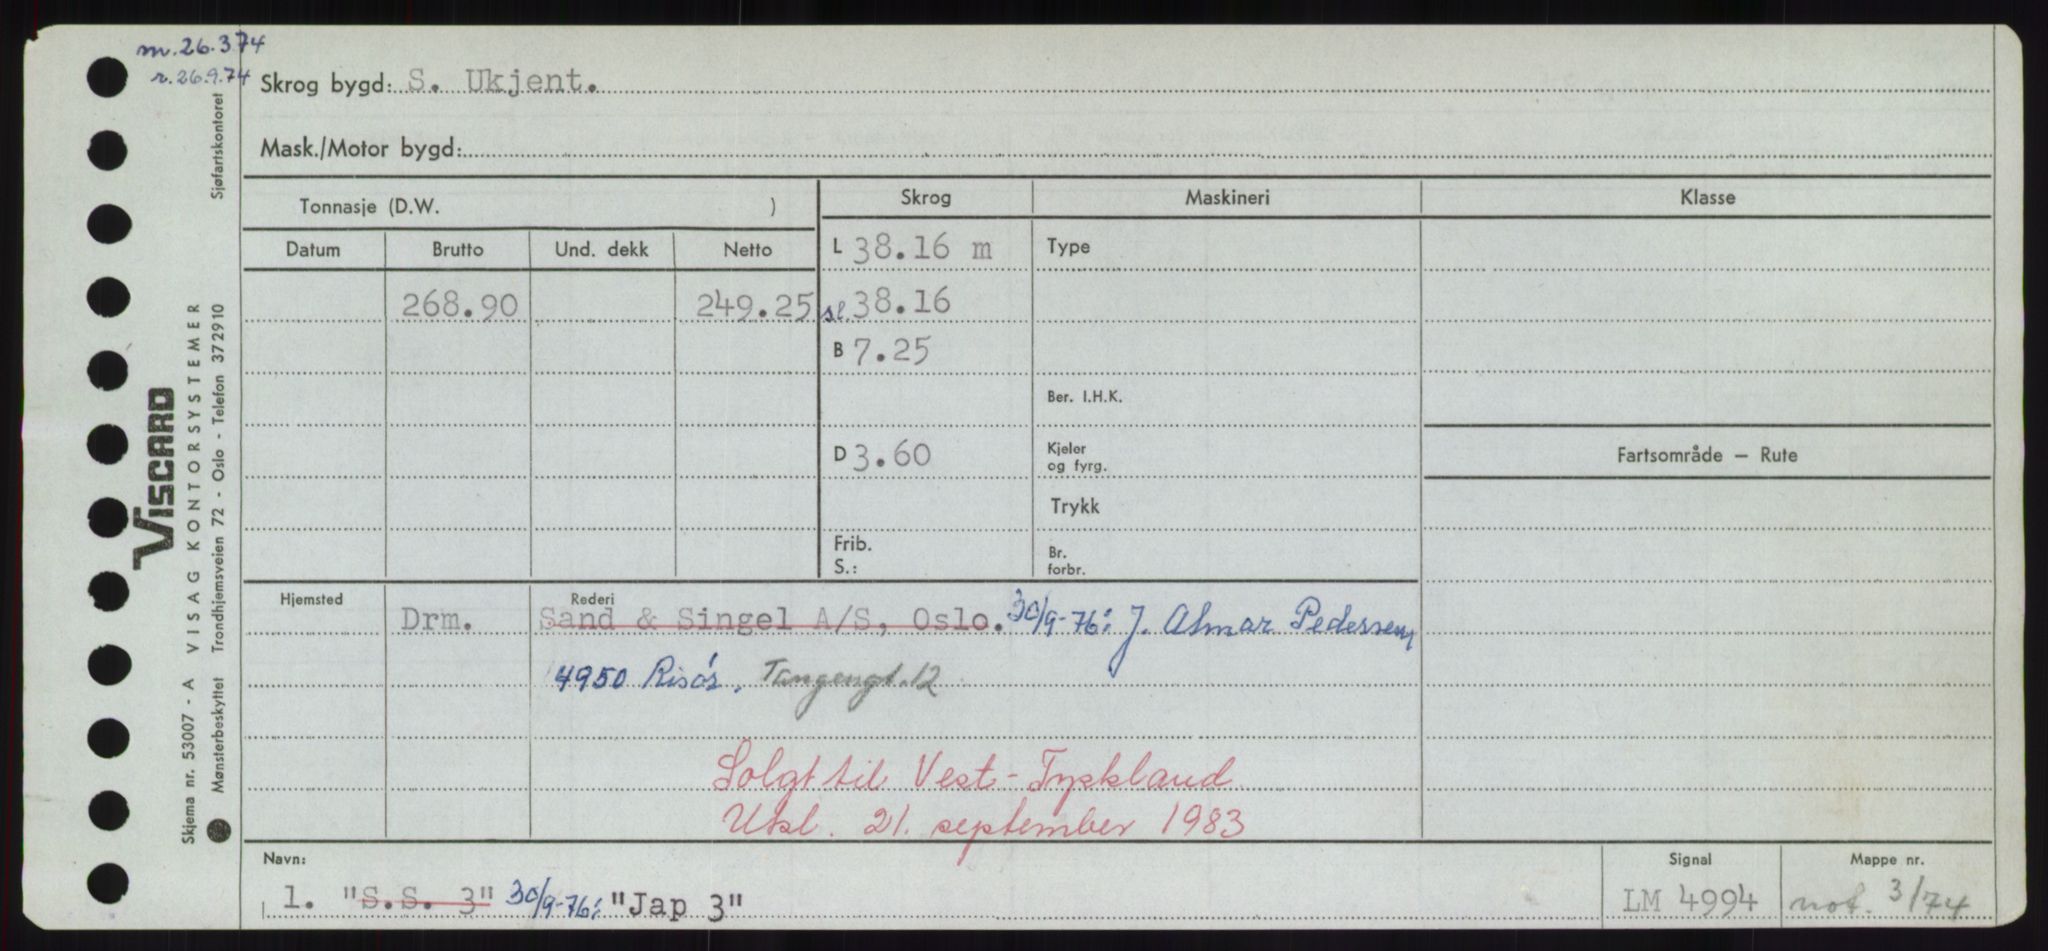 m. 26.3 74
r. 26.9.74
Skrog bygd: S. Ukjent.
Mask./Motor bygd:
Tonnasje (D.W. )
Skrog Maskineri Klasse
Datum Brutto Und. dekk Netto
L 38.16 m Type
268.90 249.25 sl. 38.16
B 7.25
Ber. I.H.K.
D 3.60 Kjeler og fyrg.
Fartsområde — Rute
Trykk
Frib. S.: Br. forbr.
Hjemsted Rederi
Drm. Sand & Singel A/S, Oslo. 30/9-76: J. Almar Pedersen,
4950 Risør, Tangengt. 12
Solgt til Vest-Tyskland
Utsl. 21. september 1983
Navn: Signal Mappe nr.
1. "S.S. 3" 30/9-76: "Jap 3" LM 4994 not. 3/74
VISCARD
Skjema nr. 53007 - A VISAG KONTORSYSTEMER
Mønsterbeskyttet Trondhjemsveien 72 - Oslo - Telefon 372910 Sjøfartskontoret